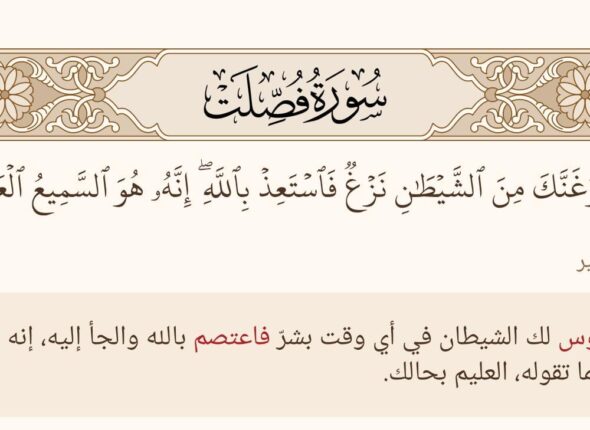 سُورَةُ فُصِّلَتْ
مِنَ ٱلشَّيْطَٰنِ نَزْغٌ فَٱسْتَعِذْ بِٱللَّهِۖ إِنَّهُۥ هُوَ ٱلسَّمِيعُ
لك الشيطان في أي وقت بشرّ فاعتصم بالله والجأ إليه، إنه
تقوله، العليم بحالك.